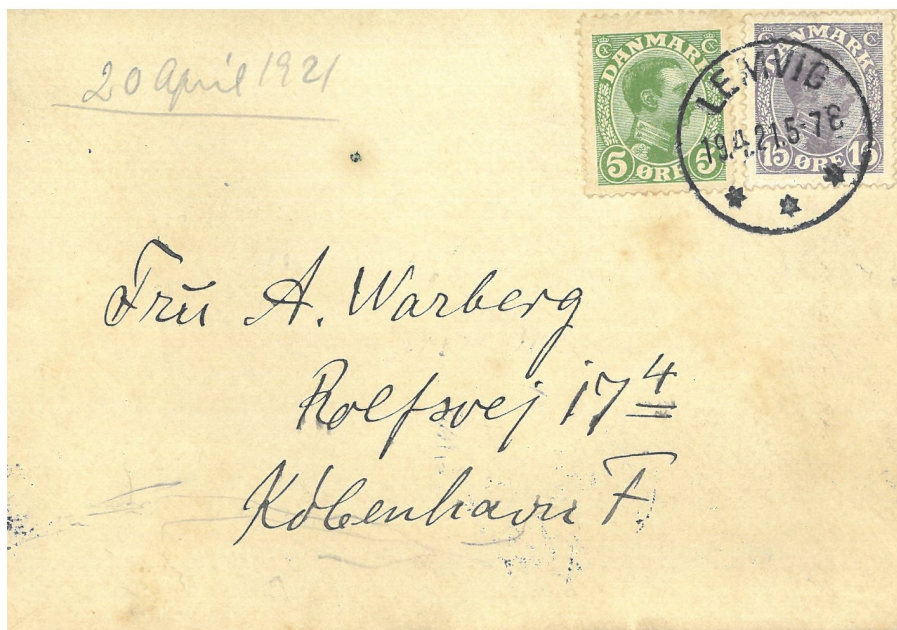 20 April 1921
DANMARK
5 ØRE 5
DANMARK
15 ØRE 15
LEMVIG
19.4.21.5-7E
Fru A. Warberg
Rolfsvej 17 4
København F.